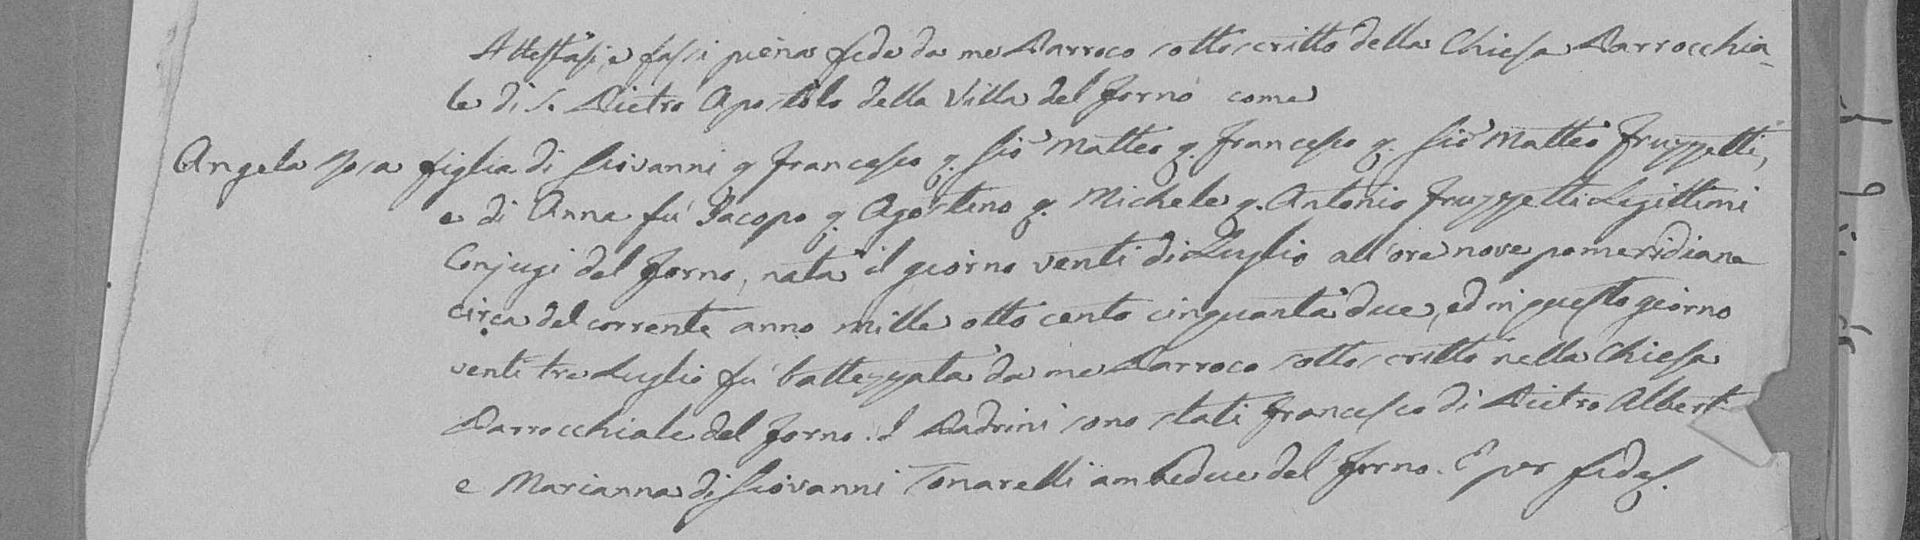 Attestasi, e fassi piena fede da me Parroco sottoscritto della Chiesa Parrocchia-
le di S. Pietro Apostolo della Villa del Forno come
Angela Rosa figlia di Giovanni q Francesco q. Gio Matteo q. Francesco q. Gio Matteo Fruzzetti,
e di Anna fu Jacopo q. Agostino q. Michele q. Antonio Fruzzetti Legittimi
Conjugi del Forno, nata il giorno venti di Luglio all'ore nove pomeridiane
circa del corrente anno mille otto cento cinquanta due, ed in questo giorno
venti tre Luglio fu battezzata da me Parroco sottoscritto nella Chiesa
Parrocchiale del Forno. I Padrini sono stati Francesco di Pietro Albert
e Marianna di Giovanni Tonarelli ambedue del Forno. E per fede.